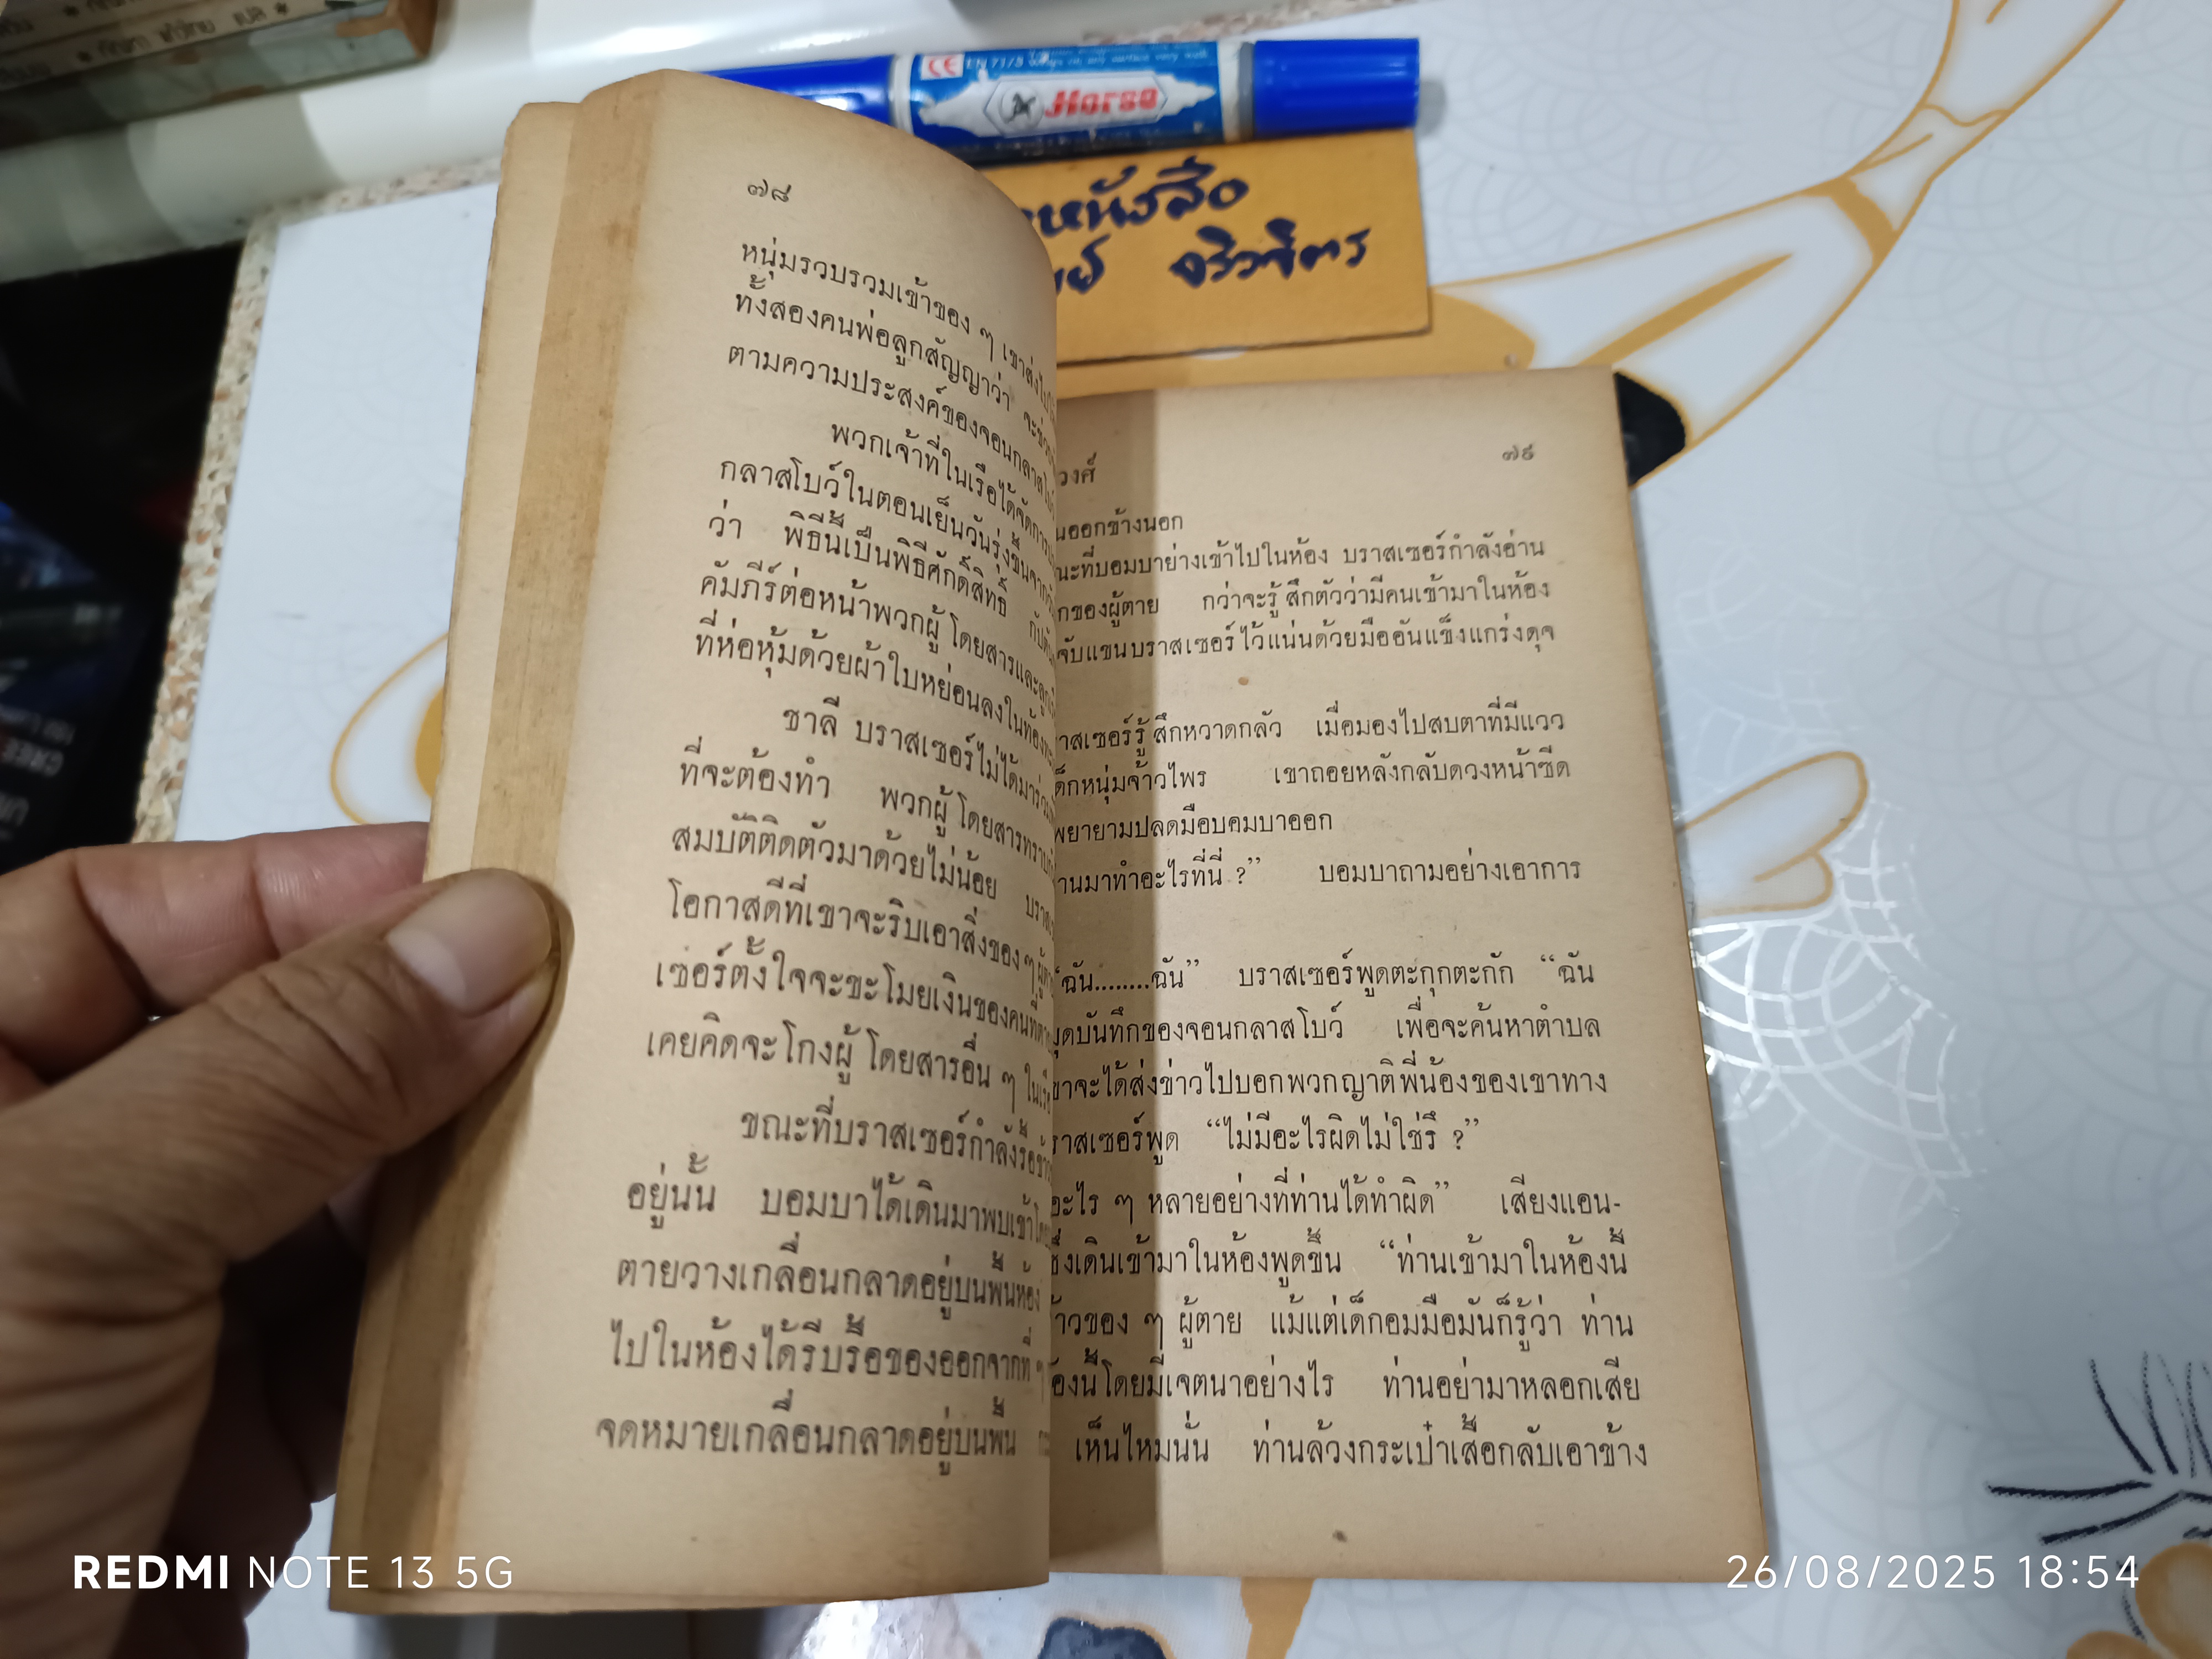 CE EN 71/3
Horse
หนังสือ
จริวจิตร
๗๘
หนุ่มรวบรวมเข้าของ ๆ เขาส่งไป
ทั้งสองคนพ่อลูกสัญญาว่า จะช่วย
ตามความประสงค์ของจอนกลาสโบว์
พวกเจ้าที่ในเรือได้จัดการ
กลาสโบว์ในตอนเย็นวันรุ่งขึ้นจาก
ว่า พิธีนี้เป็นพิธีศักดิ์สิทธิ์ กัปตัน
คัมภีร์ต่อหน้าพวกผู้โดยสารและลูก
ที่ห่อหุ้มด้วยผ้าใบหย่อนลงในท้อง
ชาลี บราสเซอร์ไม่ได้มาร่วม
ที่จะต้องทำ พวกผู้โดยสารทราบ
สมบัติติดตัวมาด้วยไม่น้อย
โอกาสดีที่เขาจะริบเอาสิ่งของ ๆ ผู้
เซอร์ตั้งใจจะขะโมยเงินของคนที่
เคยคิดจะโกงผู้โดยสารอื่น ๆ ในเรือ
ขณะที่บราสเซอร์กำลังรื้อ
อยู่นั้น บอมบาได้เดินมาพบเข้า
ตายวางเกลื่อนกลาดอยู่บนพื้นห้อง
ไปในห้องได้รีบรื้อของออกจากที่ ๆ
จดหมายเกลื่อนกลาดอยู่บนพื้น
วงศ์
๗๙
นออกข้างนอก
ณะที่บอมบาย่างเข้าไปในห้อง บราสเซอร์กำลังอ่าน
กของผู้ตาย กว่าจะรู้สึกตัวว่ามีคนเข้ามาในห้อง
จับแขนบราสเซอร์ไว้แน่นด้วยมืออันแข็งแกร่งดุจ
าสเซอร์รู้สึกหวาดกลัว เมื่อมองไปสบตาที่มีแวว
ด็กหนุ่มจ้าวไพร เขาถอยหลังกลับดวงหน้าซีด
พยายามปลดมือบอมบาออก
านมาทำอะไรที่นี่ ?” บอมบาถามอย่างเอาการ
“ฉัน........ฉัน” บราสเซอร์พูดตะกุกตะกัก “ฉัน
มุดบันทึกของจอนกลาสโบว์ เพื่อจะค้นหาตำบล
ขาจะได้ส่งข่าวไปบอกพวกญาติพี่น้องของเขาทาง
ราสเซอร์พูด “ไม่มีอะไรผิดไม่ใช่รึ ?”
อะไร ๆ หลายอย่างที่ท่านได้ทำผิด” เสียงแอน-
ซึ่งเดินเข้ามาในห้องพูดขึ้น “ท่านเข้ามาในห้องนี้
้าวของ ๆ ผู้ตาย แม้แต่เด็กอมมือมันก็รู้ว่า ท่าน
้องนี้โดยมีเจตนาอย่างไร ท่านอย่ามาหลอกเสีย
เห็นไหมนั่น ท่านล้วงกระเป๋าเสื้อกลับเอาข้าง
REDMI NOTE 13 5G
26/08/2025 18:54